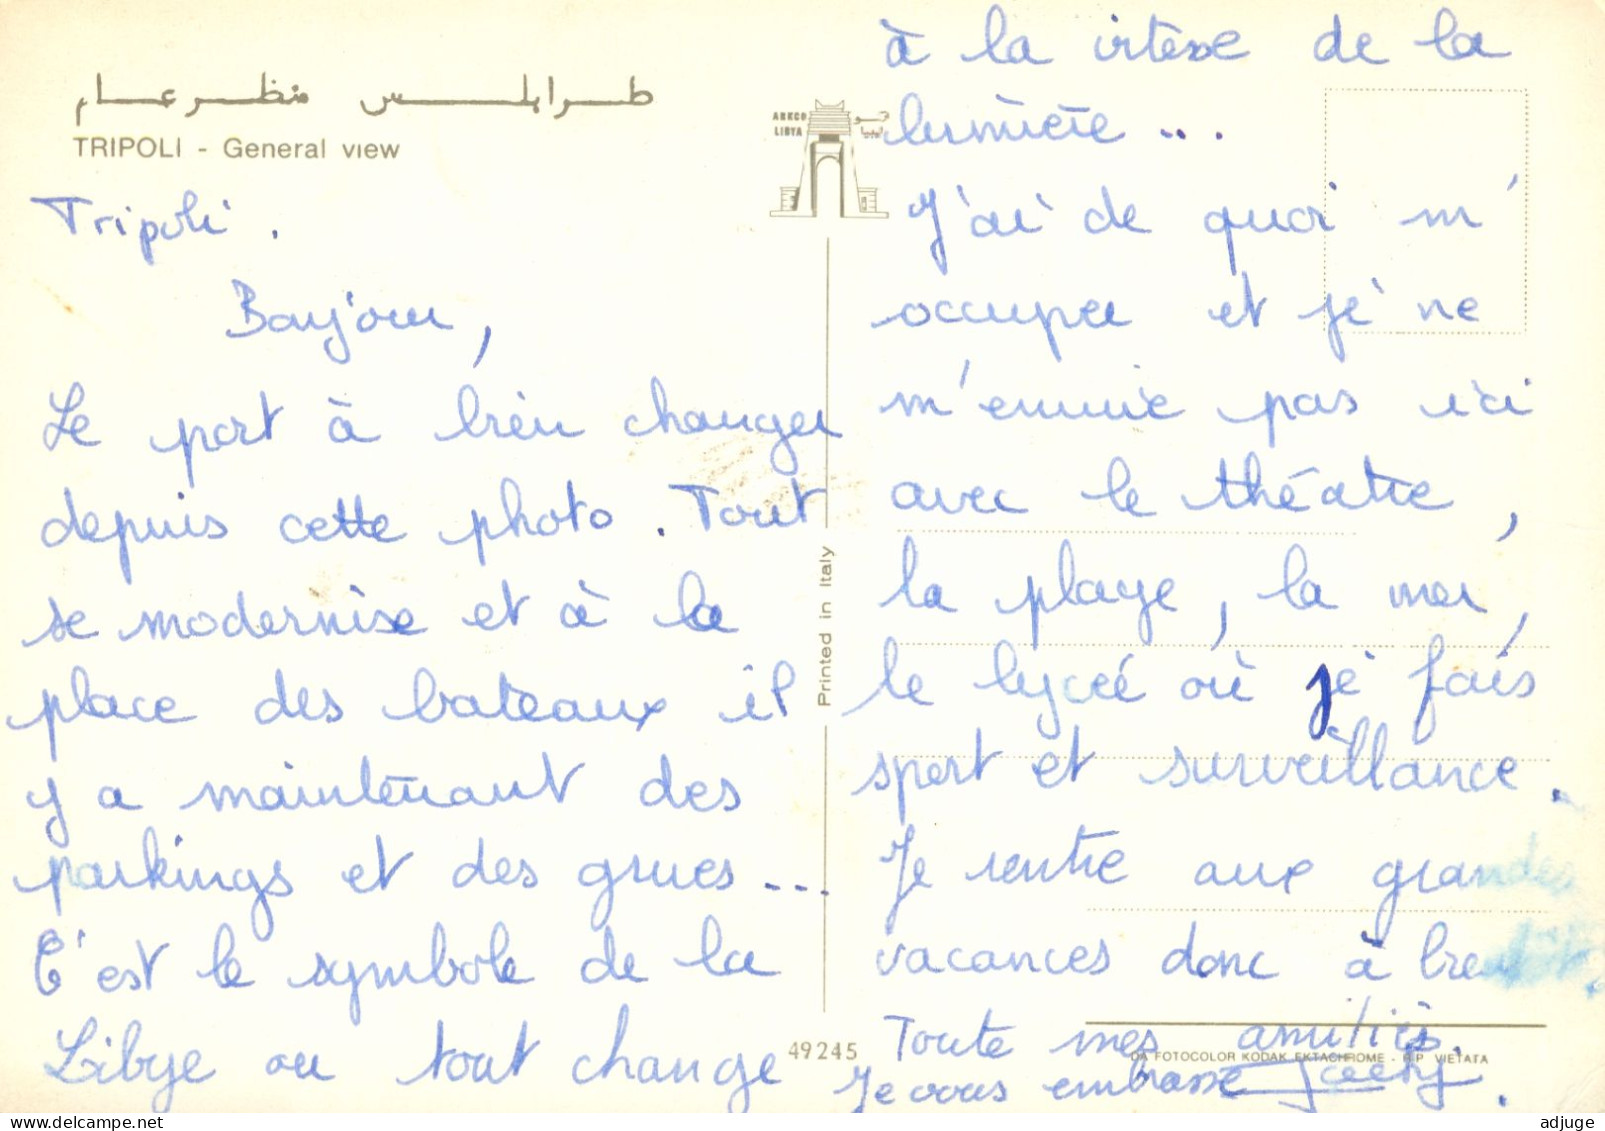 طرابلس منظر عام
TRIPOLI - General view
ARECO
LIBYA
Tripoli.
Bonjour,
Le port à bien changer
depuis cette photo. Tout
se modernise et à la
place des bateaux il
y a maintenant des
parkings et des grues...
C'est le symbole de la
Libye ou tout change
Printed in Italy
49245
à la vitesse de la
lumière...
J'ai de quoi m'
occuper et je ne
m'ennuie pas ici
avec le théatre,
la plage, la mer,
le lycée où je fais
sport et surveillance.
Je rentre aux grandes
vacances donc à bientôt.
Toute mes amitiés.
DA FOTOCOLOR KODAK EKTACHROME - R.P. VIETATA
Je vous embrasse
https://www.delcampe.net
adjuge